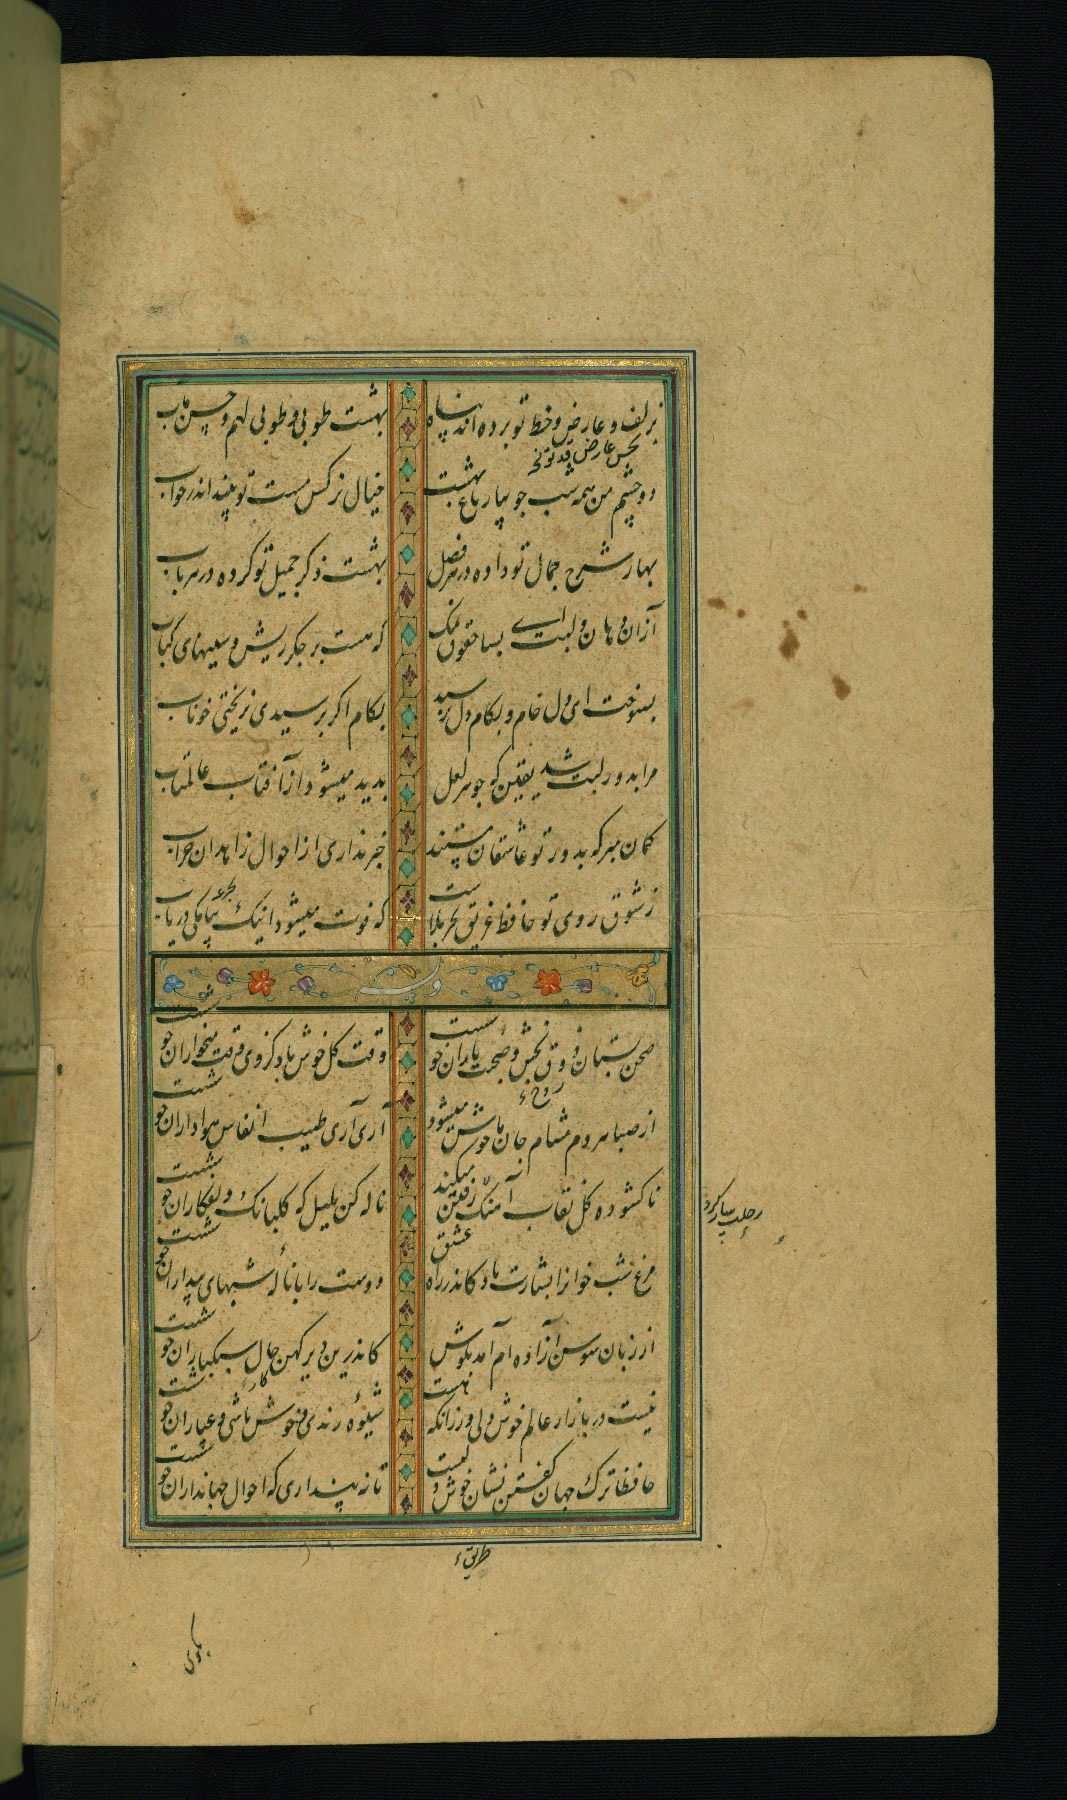 بزلف و عارض و خط تو برده اند پناه
بهشت طوبی و طوبی لهم و حسن مآب
بحسن عارض قد تو نخـ
دو چشم من همه شب جویبار باغ بهشت
خیال نرکس مست تو بیند اندر خواب
بهار شرح جمال تو داده در هر فصل
بهشت ذکر جمیل تو کرده در هر باب
از آن دهان و لبت ای بسا حقوق نمک
که هست بر جکر ریش و سینهای کباب
بسوخت این دل خام و بکام دل نرسید
بکام اکر برسیدی نریختی خوناب
مرا بدور لبت شد یقین که جوهر لعل
پدید میشود از آفتاب عالمتاب
کمان مبر که بدور تو عاشقان مستند
خبر نداری از احوال زاهدان خراب
ز شوق روی تو حافظ غریق بحر بلاست
که فوت میشود اینک بیا مکی دریاب
وله
صحن بستان ذوق بخش و صحبت یاران خوست
وقت کل خوش باد کز وی وقت میخواران خوشست
از صبا هر دم مشام جان ما خوش میشود
آری آری طیب انفاس هواداران خوشست
ناکشوده کل نقاب آهنک رفتن میکند
ناله کن بلبل که کلبانک دلفکاران خوشست
مرغ شب خوانرا بشارت باد کاندر راه عشق
دوست را با نالهٔ شبهای بیداران خوشست
از زبان سوسن آزاده ام آمد بکوش
کاندرین دیر کهن حال سبکباران خوشست
نیست در بازار عالم خوش دلی ور زانکه هست
شیوهٔ رندی و خوش باشی و عیاران خوشست
حافظا ترک جهان کفتن نشان خوش دلیست
تا نه پنداری که احوال جهانداران خوشست
طریق